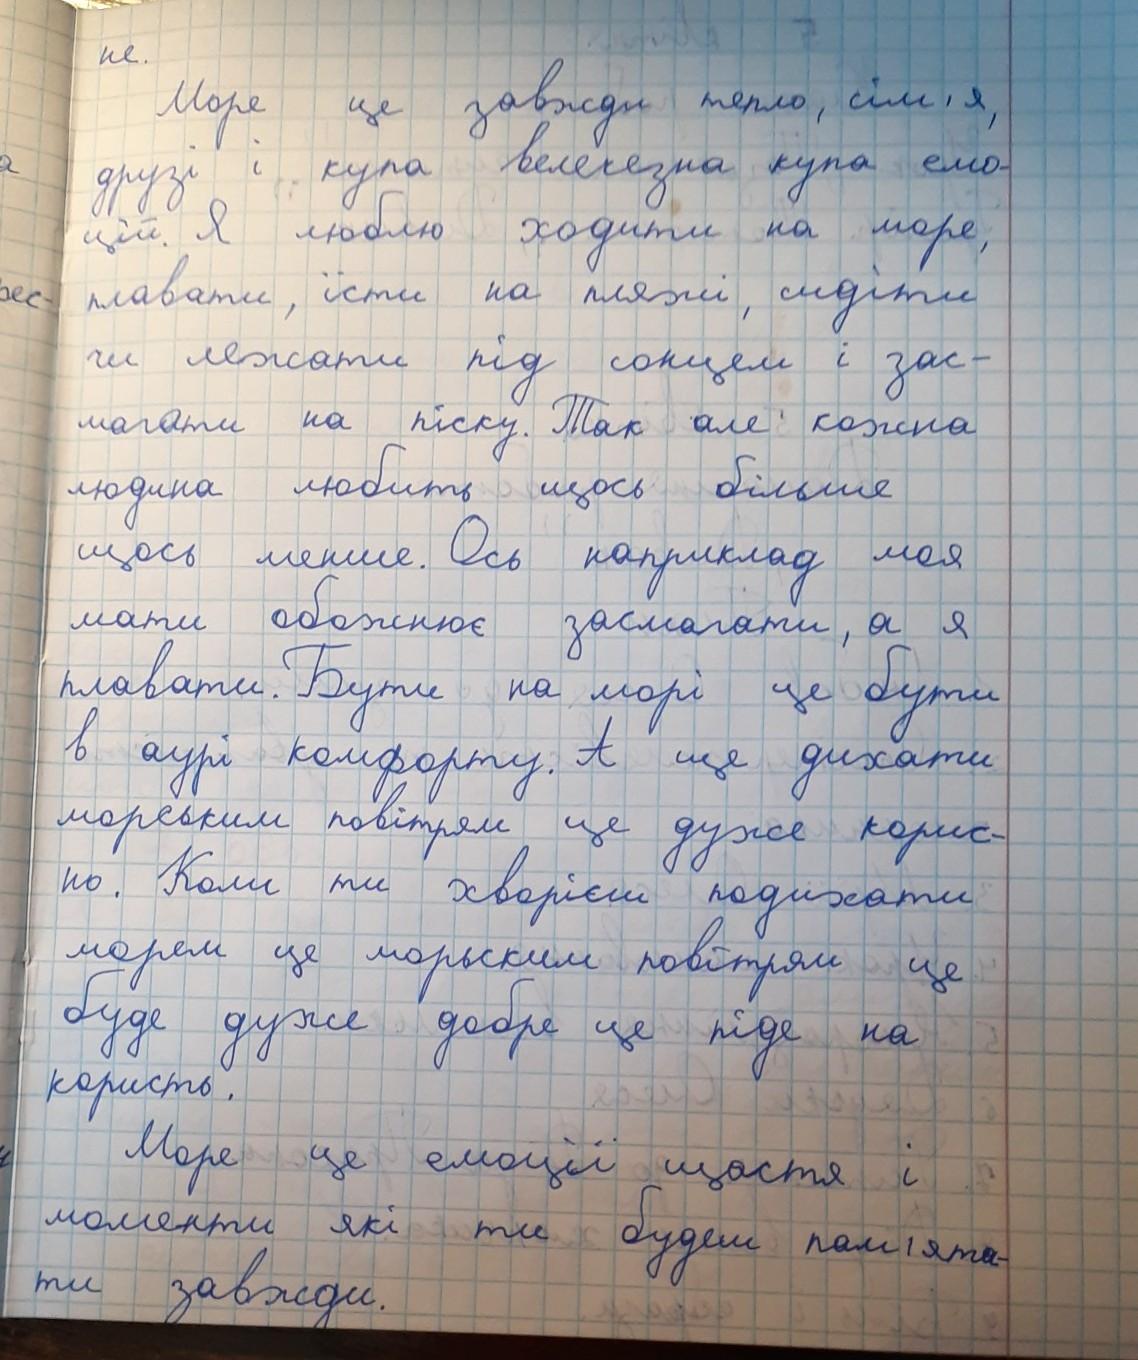 не.
Море це завжди тепло, сім'я,
друзі і купа велечезна купа емо-
цій. Я люблю ходити на море,
плавати, їсти на пляжі, сидіти
чи лежати під сонцем і зас-
магати на піску. Так але кожна
людина любить щось більше
щось менше. Ось наприклад моя
мати обожнює засмагати, а я
плавати. Бути на морі це бути
в аурі комфорту. А ще дихати
морським повітрям це дуже корис-
но. Коли ти хворієш подихати
морем це морьским повітрям це
буде дуже добре це піде на
користь.
Море це емоції щастя і
моменти які ти будеш пам'ята-
ти завжди.